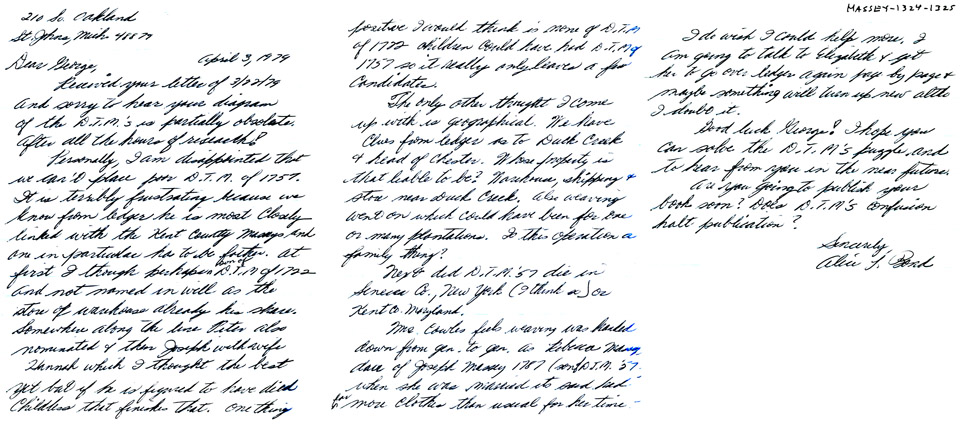 MASSEY-1324-1325
210 So. Oakland
St. Johns, Mich 48879
April 3, 1979
Dear George,
Received your letter of 3/22/79
and sorry to hear your diagram
of the D.T.M.'s is partially obsolete
after all the hours of research!
Personally, I am disappointed that
we can't place poor D.T.M. of 1757.
It is terribly frustrating because we
know from ledger he is most closely
linked with the Kent County Masseys and
one in particular has to be father. At
first I though perhaps son of D.T.M of 1722
and not named in will as the
store of warehouse already his share.
Somewhere along the line Peter also
nominated & then Joseph with wife
Hannah which I thought the best
yet but if he is figured to have died
Childless that finishes that. One thing
positive I would think is none of D.T.M
of 1722 children could have had D.T.M of
1757 so it really only leaves a few
Candidates.
The only other thought I come
up with is geographical. We have
clues from ledger as to Duck Creek
& head of Chester. Whose property is
that liable to be? Warehouse, shipping &
store near Duck Creek. Also weaving
went on which could have been for one
or many plantations. Is this operation a
family thing?
Next did D.T.M. '57 die in
Seneca Co., New York (I think so) or
Kent Co. Maryland.
Mrs. Cowles feels weaving was handed
down from gen. to gen. as Rebecca Massey
dau of Joseph Massey 1787 (son of D.T.M. '57
when she was married it said had
far more clothes than usual for her time.
I do wish I could help more. I
am going to talk to Elizabeth & get
her to go over ledger again page by page &
maybe something will turn up new altho
I doubt it.
Good luck George! I hope you
can solve the D.T.M's puzzle, and
to hear from you in the near future.
Are you going to publish your
book soon? Does D.T.M's confusion
halt publication?
Sincerely
Alice J. Bond